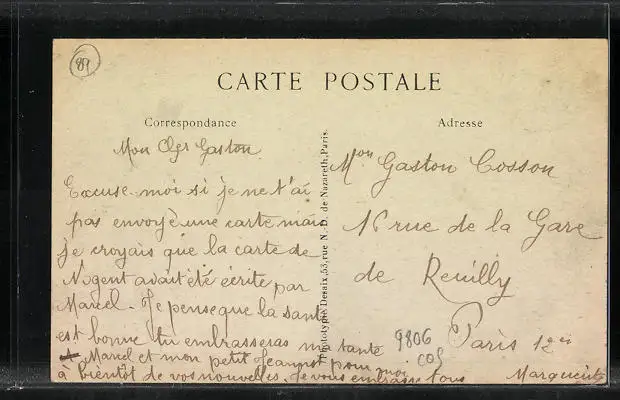 89
CARTE POSTALE
Correspondance
Adresse
Mon Cher Gaston
Excuse moi si je ne t'ai
pas envoyé une carte mais
je croyais que la carte de
Nogent avait été écrite par
Marcel. Je pense que la santé
est bonne tu embrasseras ma tante
Marcel et mon petit Jeannot pour moi
à bientôt de vos nouvelles. Je vous embrasse tous
Marguerite
Phototypie Desaix, 53, rue N.-D. de Nazareth, Paris.
Mon Gaston Cosson
16 rue de la Gare
de Reuilly
Paris 12e
9806